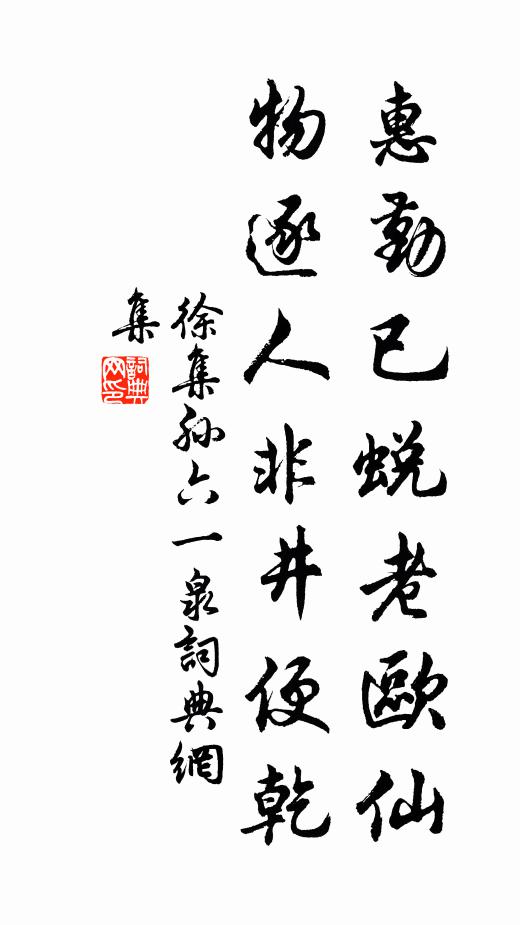 惠勤已蜕老歐仙
物逐人非井便乾
徐集孙六一泉詞典網
集
詞典網印